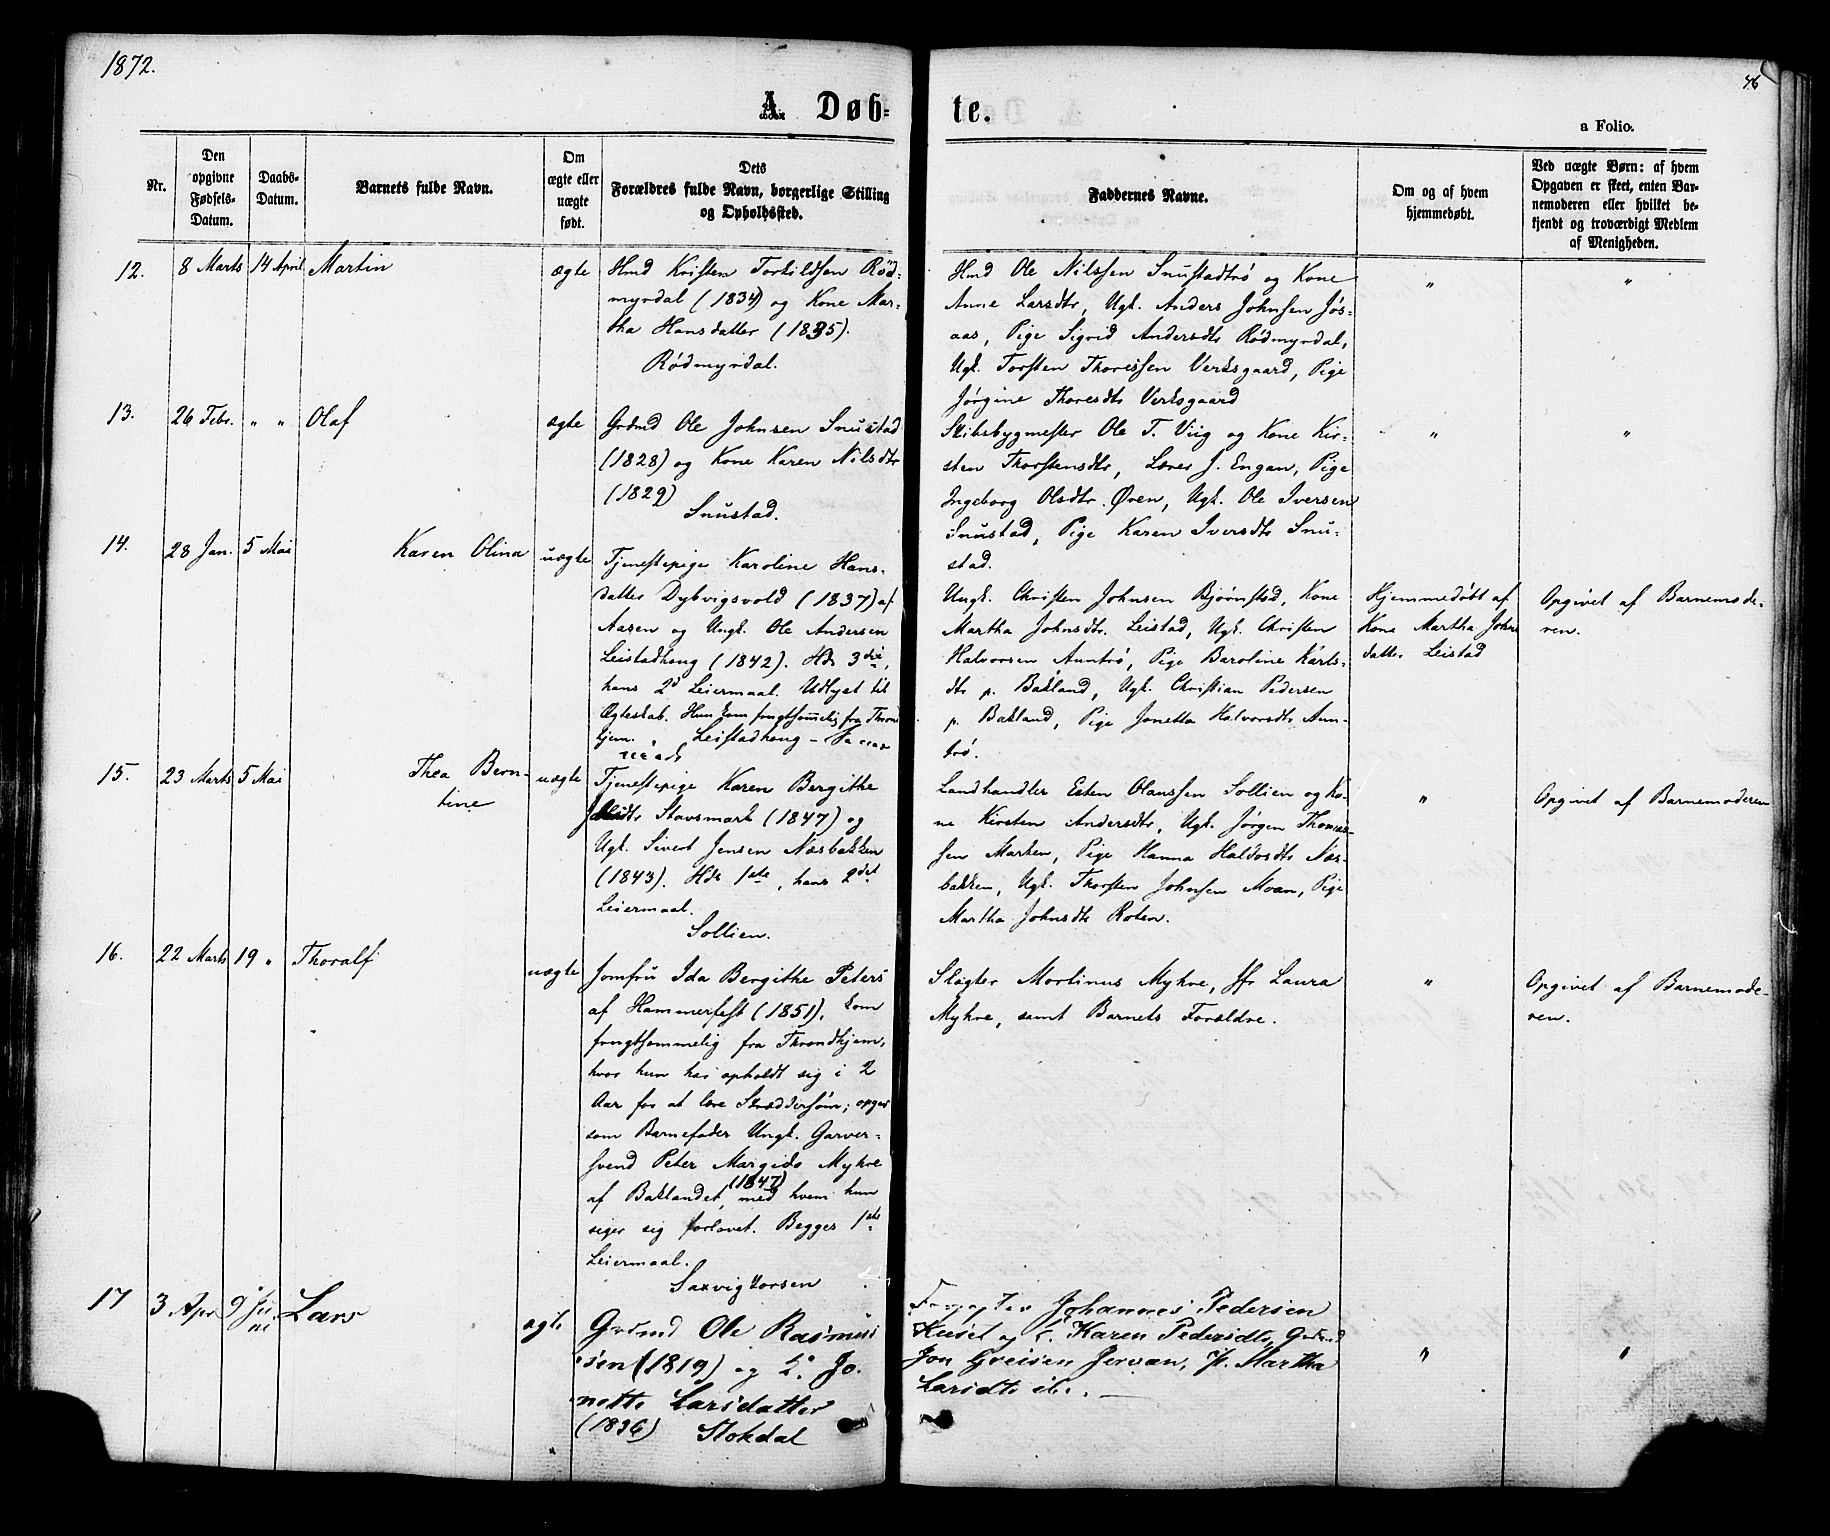 1872.
46
A. Døb-
te.
a Folio.
Nr.
Den opgivne Fødsels-Datum.
Daabs-Datum.
Barnets fulde Navn.
Om ægte eller uægte født.
Dets Forældres fulde Navn, borgerlige Stilling og Opholdssted.
Faddernes Navne.
Om og af hvem hjemmedøbt.
Ved uægte Børn: af hvem Opgaven er skeet, enten Barnemoderen eller hvilket bekjendt og troværdigt Medlem af Menigheden.
12. 8 Marts 14 April Martin ægte
Hmd Kristen Torkildsen Rød-
myrdal (1834) og Kone Mar-
tha Hansdatter (1835).
Rødmyrdal.
Hmd Ole Nilssen Snustadtrø og Kone
Anne Larsdtr, Ugk. Anders Johnsen Jøs-
aas, Pige Sigrid Andersdtr Rødmyrdal,
Ugk. Torsten Thoressen Verksgaard, Pige
Jørgine Thoresdtr Verksgaard
" "
13. 26 Febr. " " Olaf ægte
Grdmd Ole Johnsen Snustad
(1828) og Kone Karen Nilsdtr
(1829)
Snustad.
Skibsbygmester Ole T. Viig og Kone Kir-
sten Thorstensdtr, Lærer J. Engan, Pige
Ingeborg Olsdtr. Øren, Ugk. Ole Iversen
Snustad, Pige Karen Iversdtr Snu-
stad.
" "
14. 28 Jan. 5 Mai Karen Olina uægte
Tjenestepige Karoline Hans-
datter Dybvigsvold (1837) af
Aasen og Ungk. Ole Andersen
Leistadhaug (1842). Hds 3die,
hans 2d Leiermaal. Udlyst til
Ægteskab. Hun kom frugtsommelig fra Thrond
hjem. Leistadhaug -
Ungk. Christen Johnsen Bjørnstad, Kone
Martha Johnsdtr. Leistad, Ugk. Christen
Halvorsen Auntrø, Pige Baroline Karls-
dtr p. Bakland, Ugk. Christian Pedersen
p. Bakland, Pige Jonetta Halvorsdtr Aun-
trø.
Hjemmedøbt af
Kone Martha Johns
datter Leistad
Opgivet af Barnemode-
ren.
15. 23 Marts 5 Mai Thea Bern-
tine uægte
Tjenestepige Karen Bergithe
Stavsmark (1847) og
Ugk. Sivert Jensen Næsbakken
(1843). Hds 1ste, hans 2det
Leiermaal.
Sollien.
Landhandler Esten Olaussen Sollien og Ko-
ne Kirsten Andersdtr, Ugk. Jørgen Thomas-
sen Marken, Pige Hanna Haldosdtr Næs-
bakken, Ugk. Thorsten Johnsen Moan, Pige
Martha Johnsdtr Roten.
"
Opgivet af Barnemoderen
16. 22 Marts 19 " Thoralf uægte
Jomfru Ida Bergithe Peters
af Hammerfest (1851), kom
frugtsommelig fra Throndhjem,
hvor hun har opholdt sig i 2
Aar for at lære Skræddersøm; opgav
som Barnefader Ungk. Garver-
svend Peter Margido Myhre
af Baklandet, (1847) med hvem hun
siger sig forlovet. Begges 1ste
Leiermaal.
Saxvigkorsen
Slagter Mortinus Myhre, Jfr Laura
Myhre, samt Barnets Forældre.
"
Opgivet af Barnemode-
ren.
17 3 Apr 9 Ju
ni Lars ægte
Grdmd Ole Rasmus
sen (1819) og K. Jo-
nette Larsdatter
(1836) Stokdal
Forpagter Johannes Pedersen
Huset og K. Karen Pedersdtr, Grdmd
Jon Greisen Jervan, P. Martha
Larsdtr ib. -
" "